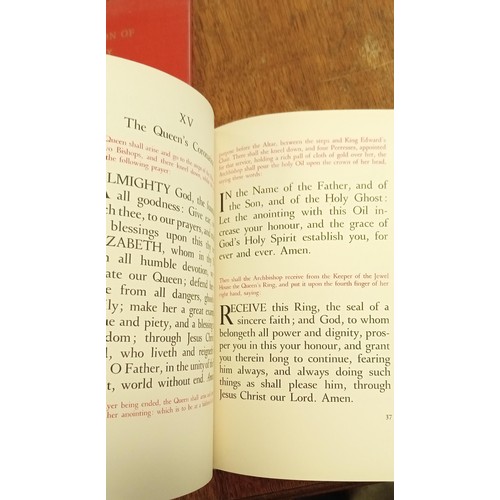 ON OF
XV
The Queen's Coron
Queen shall arise and go to the steps of
Bishops, and there kneel down
the following prayer:
ALMIGHTY God, the
all goodness: Give ear
ch thee, to our prayers, and
blessings upon this thy
ZABETH, whom in
all humble devotion, we
ate our Queen; defend
from all dangers, ghost
dily; make her a great exam
ue and piety, and a blessing
dom; through Jesus Christ
d, who liveth and reigneth
O Father, in the unity of th
it, world without end. Amen
yer being ended, the Queen shall
her anointing: which is to be at a
before the Altar, between the steps and King Edward's
Chair. There shall she kneel down, and four Peeresses, appointed
for that service, holding a rich pall of cloth of gold over her, the
Archbishop shall pour the holy Oil upon the crown of her head,
saying these words:
IN the Name of the Father, and of
the Son, and of the Holy Ghost:
Let the anointing with this Oil in-
crease your honour, and the grace of
God's Holy Spirit establish you, for
ever and ever. Amen.
Then shall the Archbishop receive from the Keeper of the Jewel
House the Queen's Ring, and put it upon the fourth finger of her
right hand, saying:
RECEIVE this Ring, the seal of a
sincere faith; and God, to whom
belongeth all power and dignity, pros-
per you in this your honour, and grant
you therein long to continue, fearing
him always, and always doing such
things as shall please him, through
Jesus Christ our Lord. Amen.
37